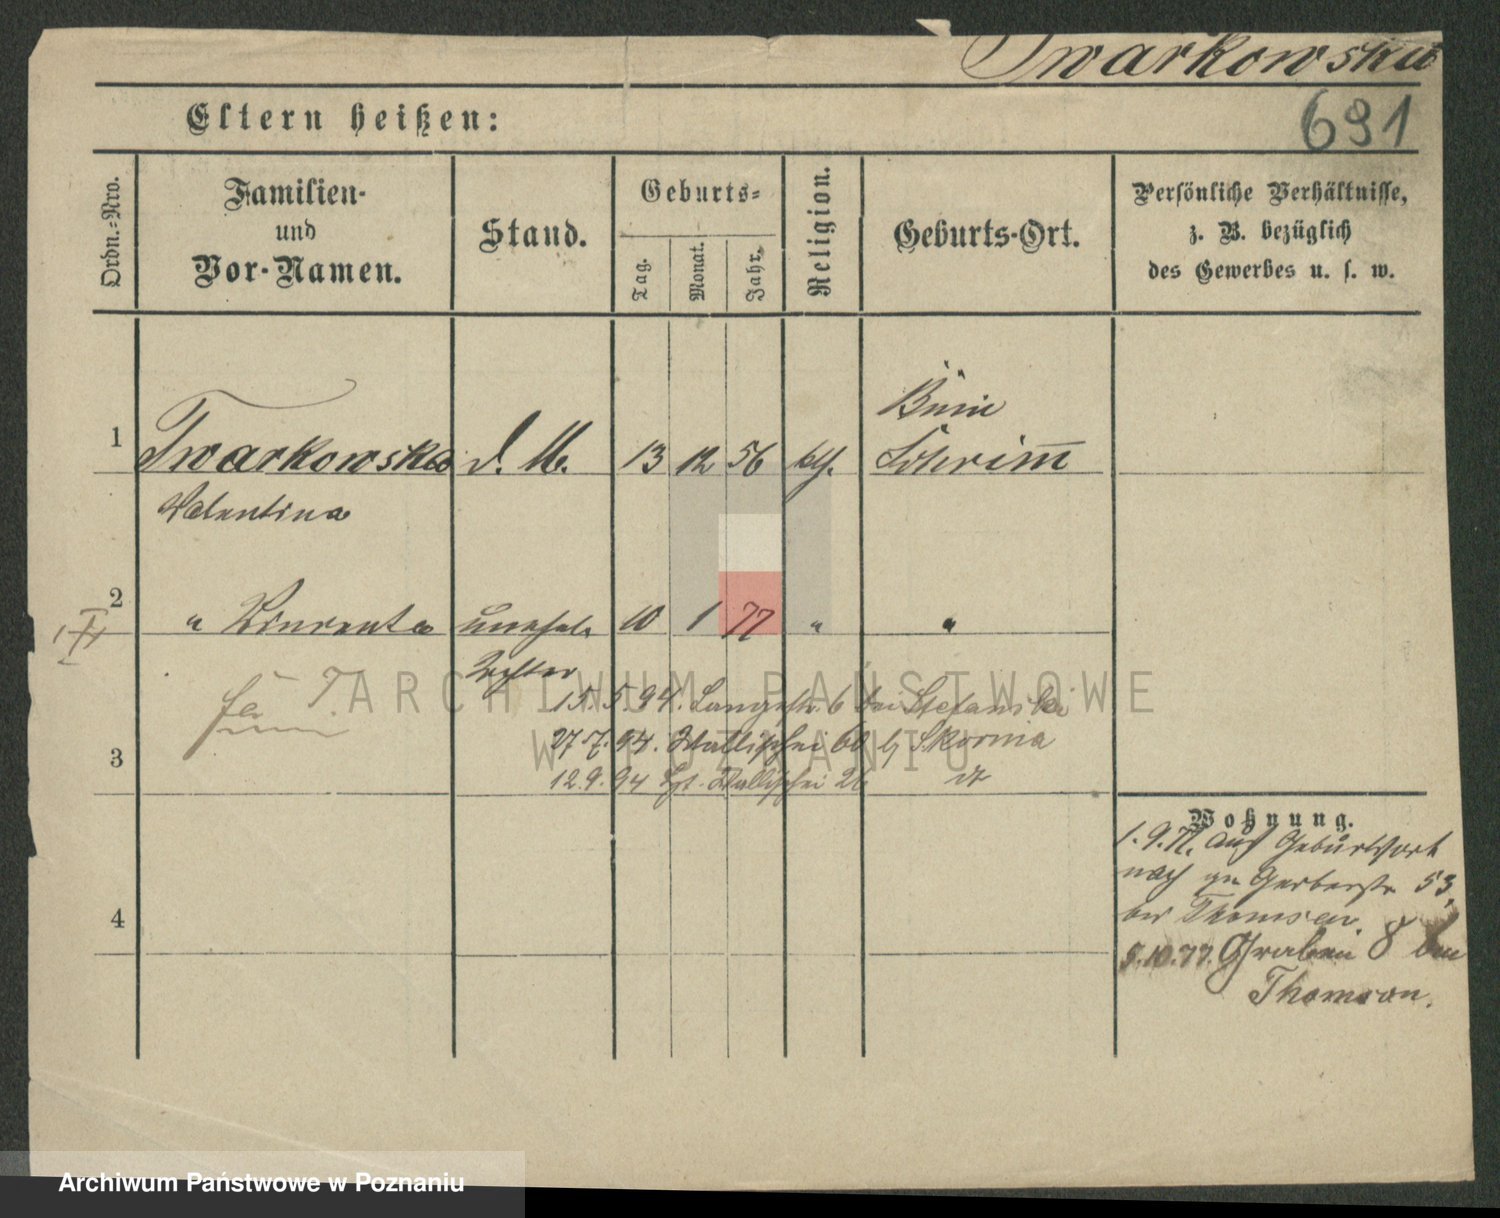 Twarkowska
691
Eltern heißen:
Ordn.-Nro.
Familien-
und
Vor-Namen.
Stand.
Geburts-
Tag.
Monat.
Jahr.
Religion.
Geburts-Ort.
Persönliche Verhältnisse,
z. B. bezüglich
des Gewerbes u. s. w.
Bnin
1 Twarkowska d. M. 13 12 56 kth. Schrimm
Valentina
2 " Vincenta unehel. 10 1 77 " "
Tochter
15.5.94. Langestr. 6 bei Stefanski
3
27.7.94. Wallischei 60 b/ Skornia
12.9.94 Wallischei 26 dt
Wohnung.
1.9.77. aus Geburtsort
nach Gerberstr 53,
bei Thomsen.
4
5.10.77. Graben 8 bei
Thomson.
ARCHIWUM PAŃSTWOWE
W POZNANIU
Archiwum Państwowe w Poznaniu